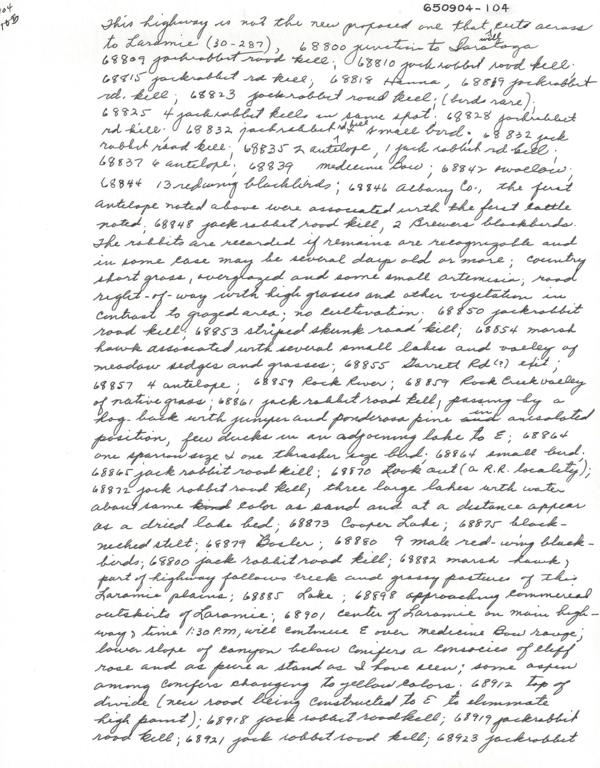 650904-104
104
This highway is not the new proposed one that cuts across
to Laramie (30-287), 68800 junction to Saratoga
68809 jackrabbit road kill; 68810 jack rabbit road kill.
68815 jackrabbit rd kill; 68818 Hanna, 68819 jackrabbit
rd. kill; 68823 jackrabbit road kill; (birds rare);
68825 4 jackrabbit kills in same spot. 68828 jackrabbit
rd kill. 68832 jackrabbit rd kill & small bird. 68832 jack
rabbit road kill; 68835 2 antelope, 1 jack rabbit rd kill;
68837 6 antelope; 68839 Medicine Bow; 68842 swallow;
68844 13 redwing blackbirds; 68846 Albany Co., the first
antelope noted above were associated with the first cattle
noted, 68848 jack rabbit road kill, 2 Brewers blackbirds.
The rabbits are recorded if remains are recognizable and
in some case may be several days old or more; country
short grass, overgrazed and some small artemisia; road
right-of-way with high grasses and other vegetation in
contrast to grazed area; no cultivation; 68850 jackrabbit
road kill; 68853 striped skunk road kill; 68854 marsh
hawk associated with several small lakes and valley of
meadow sedges and grasses; 68855 Garrett Rd (?) exit;
68857 4 antelope; 68859 Rock River; 68859 Rock Creek valley
of native grass; 68861 jack rabbit road kill, passing by a
hog-back with juniper and ponderosa pine in an isolated
position, few ducks in an adjoining lake to E; 68864
one sparrow size & one thrasher size bird. 68864 small bird.
68865 jack rabbit road kill; 68870 Lookout (a R.R. locality);
68872 jack rabbit road kill, three large lakes with water
about same kind color as sand and at a distance appear
as a dried lake bed; 68873 Cooper Lake; 68875 black-
necked stilt; 68879 Bosler; 68880 9 male red-wing black-
birds; 68800 jack rabbit road kill; 68882 marsh hawk,
part of highway follows creek and grassy pastures of this
Laramie plains; 68885 Lake; 68898 approaching commercial
outskirts of Laramie; 68901 center of Laramie on main high-
way, time 1:30 P.M, will continue E over Medicine Bow range;
lower slope of canyon below conifers a consocies of cliff
rose and as pure a stand as I have seen; some aspen
among conifers changing to yellow colors. 68912 top of
divide (new road being constructed to E to eliminate
high point); 68918 jack rabbit road kill; 68919 jackrabbit
road kill; 68921 jack rabbit road kill; 68923 jackrabbit